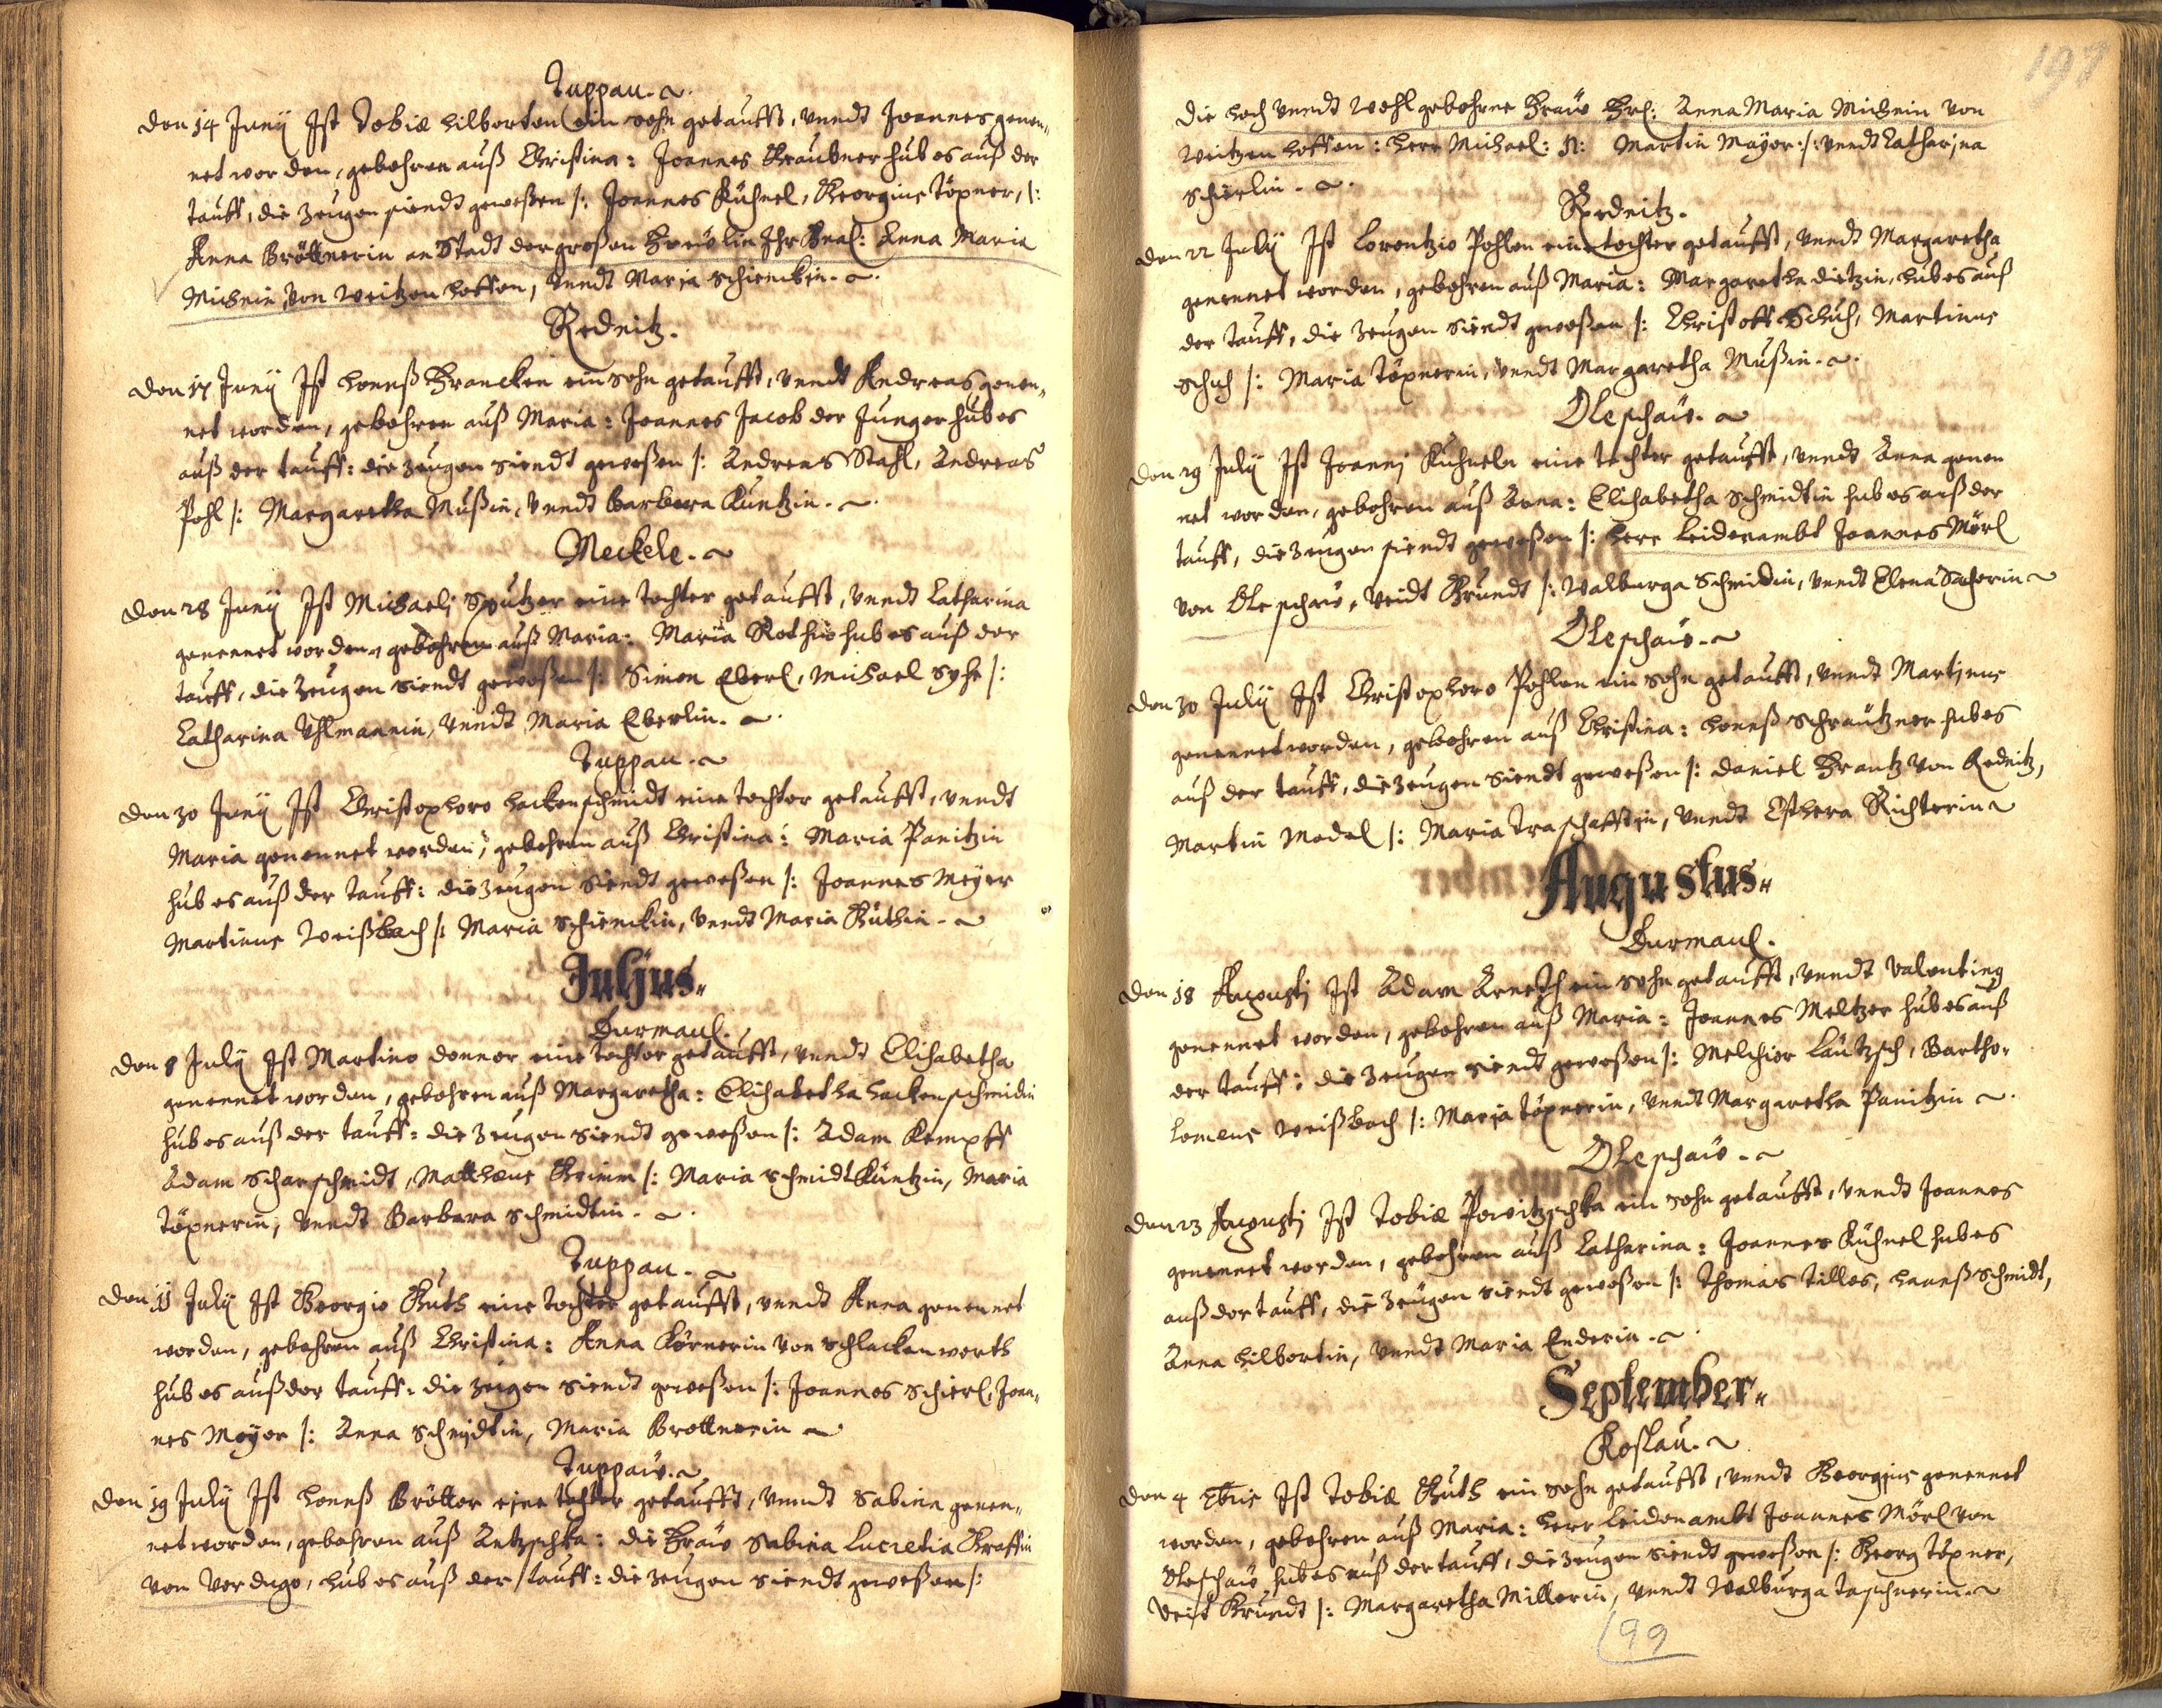 Tuppau.
Den 14 Junij Ist Tobiæ hilberten ein sohn getaufft, vnndt Joannes genen„
net worden, gebohren auß Christina: Joannes Graubner hub es auß der
tauff, die zeugen siendt geweßen /: Joannes Kühnel, Georgius Töpner, /:
Anna Bröttnerin an Stadt der großen Freülin Ihr Gnal: Anna Maria
Michnin, von Weitzen hoffen, vnndt Maria schienckin.
Rednitz.
Den 17 Junij Ist hannß Francken ein sohn getaufft, vnndt Andreas genen„
net worden, gebohren auß Maria: Joannes Jacob der Junger hub es
auß der tauff: die zeugen siendt geweßen /: Andreas Stahl, Andreas
Pohl /: Margaretha Nußin, vnndt Barbara Kuntzin.
Meckele.
Den 28 Junij Ist Michaeli Sputzer eine tochter getaufft, vnndt Catharina
genennet worden, gebohren auß Maria: Maria Rothin hub es auß der
tauff, die zeugen siendt geweßen /: Simon Eberl, Michael Syhr /:
Catharina Uhlmannin, vnndt Maria Eberlin.
Tuppau.
Den 30 Junij Ist Christophoro hackenschmidt eine tochter getaufft, vnndt
Maria genennet worden, gebohren auß Christina: Maria Panitzin
hub es auß der tauff: die zeugen siendt geweßen /: Joannes Meyer
Martinus Weißbach /: Maria schienckin, vnndt Maria Guthin.
Julius„
Durmaul.
Den 8 Julij Ist Martino donner eine tochter getaufft, vnndt Elisabetha
genennet worden, gebohren auß Margaretha: Elisabetha hackenschmidin
hub es auß der tauff: die zeugen siendt geweßen /: Adam Kempff
Adam scharschmidt, Mattheus Grimm /: Maria schmidt Kuntzin, Maria
Töpnerin, vnndt Barbara schmidtin.
Tuppau.
Den 11 Julij Ist Georgio Guth eine tochter getaufft, vnndt Anna genennet
worden, gebohren auß Christina: Anna Körnerin von schlackenwerth
hub es auß der tauff: die zeugen siendt geweßen /: Joannes schierl, Joan„
nes Meyer /: Anna schmidtin, Maria Brottnerin
Tuppaw.
Den 19 Julij Ist hannß Brötter eine tochter getaufft, vnndt Sabina genen„
net worden, gebohren auß Antzschka: die Fraw Sabina Lucretia Graffin
von Verdugo, hub es auß der tauff: die zeugen siendt geweßen /:
197
die hoch vnndt wohl gebohrne Fraw Frl: Anna Maria Michnin von
Weitzen hoffen: herr Michael: N: Martin Mayer :/: vnndt Catharina
schierlin.
Rednitz.
Den 22 Julij Ist Lorentzio Pohlen eine tochter getaufft, vnndt Margaretha
genennet worden, gebohren auß Maria: Margaretha dietzin, hub es auß
der tauff, die zeugen siendt geweßen /: Christoff Schuh, Martinus
schuh /: Maria Töpnerin, vnndt Margaretha Nußin.
Oleschaw.
Den 29 Julij Ist Joanni Kuhneln eine tochter getaufft, vnndt Anna genen
net worden, gebohren auß Anna: Elisabetha schmidtin hub es auß der
tauff, die zeugen siendt geweßen /: herr Leidenambt Joannes Mörl
von Oleschaw, Veidt Grundt /: Walburga Schmidin, vnndt Elena Sacherin
Oleschaw.
Den 30 Julij Ist Christophoro Pohlen ein sohn getaufft, vnndt Martinus
genennet worden, gebohren auß Christina: hannß schrautzner hub es
auß der tauff, die zeugen siendt geweßen /: Daniel Frantz von Rednitz,
Martin Model /: Maria Traschafftin, vnndt Esthera Richterin
Augustus„
Durmaul.
Den 18 Augusti Ist Adam Arneth ein sohn getaufft, vnndt Valentinq
genennet worden, gebohren auß Maria: Joannes Meltzer hub es auß
der tauff: die zeugen siendt geweßen /: Melchior Lautzsch, Bartho„
lomeus Weißbach /: Maria Töpnerin, vnndt Margaretha Panitzin
Oleschaw.
Den 23 Augusti Ist Tobiæ Powitzschka ein sohn getaufft, vnndt Joannes
genennet worden, gebohren auß Catharina: Joannes Kühnel hub es
auß der tauff, die zeugen siendt geweßen /: Thomas Tilles, hannß schmidt,
Anna hilbertin, vnndt Maria Enderin.
September„
Koslau.
Den 4 7bris Ist Tobiæ Guth ein sohn getaufft, vnndt Georgius genennet
worden, gebohren auß Maria: herr Leidenambt Joannes Mörl von
Oleschaw hub es auß der tauff, die zeugen siendt geweßen /: Georg Töpner,
Veit Grundt /: Margaretha Millerin, vnndt Walburga Taschnerin
199